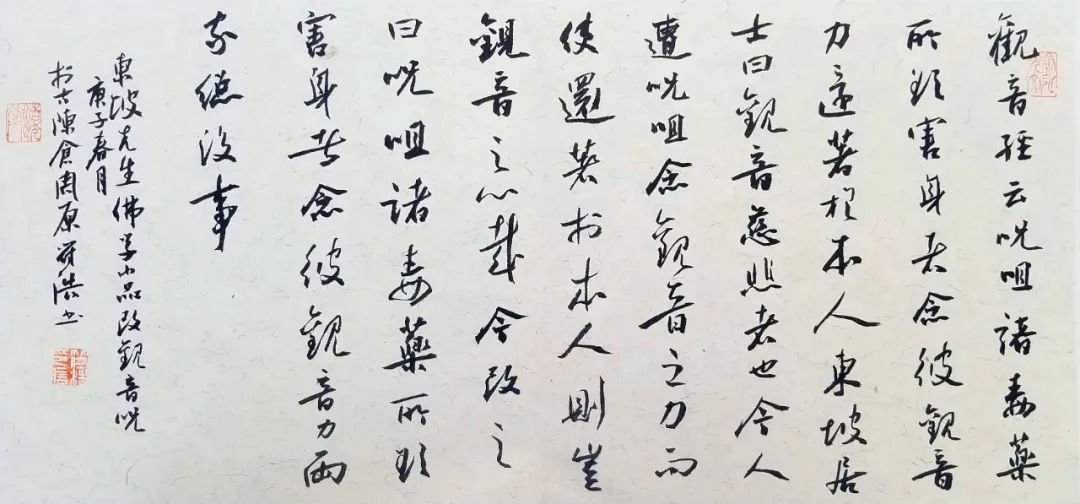 觀音經云呪咀諸毒藥
所欲害身者念彼觀音
力還著於本人東坡居
士曰觀音慈悲者也今人
遭呪咀念觀音之力而
使還著於本人則豈
觀音之心哉今改之
曰呪咀諸毒藥所欲
害身者念彼觀音力兩
家總沒事
東坡先生佛學小品改觀音呪
庚子春月
於古陳倉周原